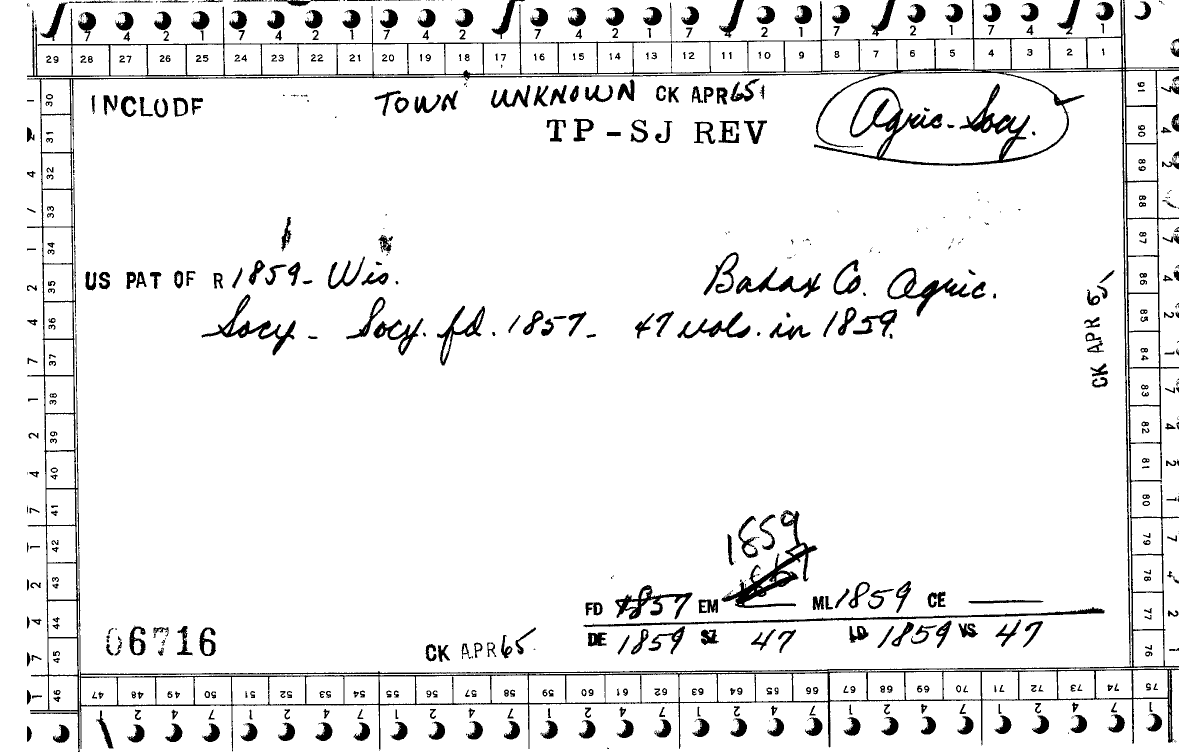 7 4 2 1 7 4 2 1 7 4 2 1 7 4 2 1 7 4 2 1 7 4 2 1
29 28 27 26 25 24 23 22 21 20 19 18 17 16 15 14 13 12 11 10 9 8 7 6 5 4 3 2 1
INCLUDE TOWN UNKNOWN CK APR 65
TP-SJ REV
Agric. Socy.
US PAT OF R 1859 - Wis. Badax Co. Agric.
Socy - Socy. fd. 1857 - 47 vols. in 1859.
CK APR 65
1859
FD 1857 EM ML 1859 CE
DE 1859 SZ 47 LD 1859 VS 47
06716
CK APR 65.
30 31 32 33 34 35 36 37 38 39 40 41 42 43 44 45 46
91 90 89 88 87 86 85 84 83 82 81 80 79 78 77 76
47 48 49 50 51 52 53 54 55 56 57 58 59 60 61 62 63 64 65 66 67 68 69 70 71 72 73 74 75